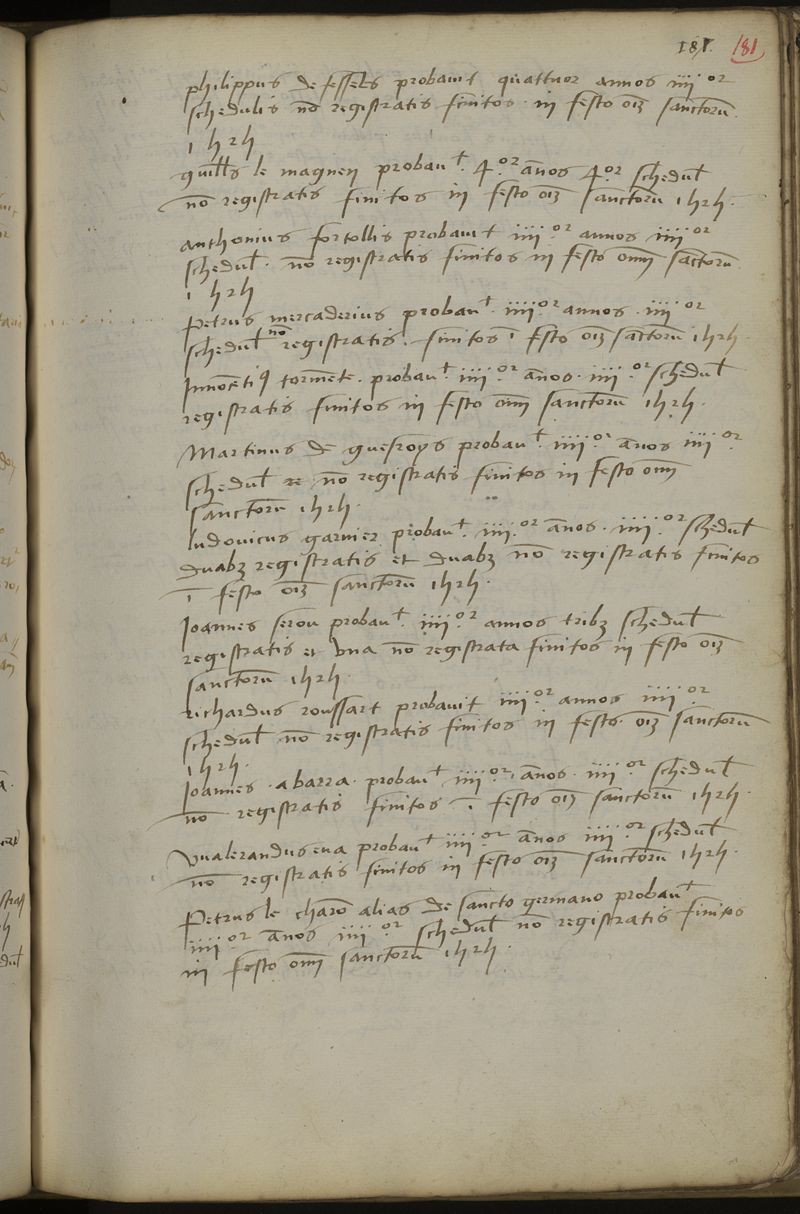 181. 181
philippus de fessels probavit quattuor annos iiii or
schedulis nō registratis finitos in festo oīm sanctorū.
1525
guill's le magnen probavt. 4or ānos 4or schedul
nō registratis finitos in festo oīm sanctorū 1525.
anthonius fortollis probavit iiii or annos iiii or
schedul. nō registratis finitos in festo omī sāctorū.
1525
Petrus mercaderius probavt. iiii or annos. iiii or
schedul nō registratis. finitos ī festo oīm sāctorū 1525.
Innocētiꝰ tormēte. probavt. iiii or ānos. iiii or schedul
registratis finitos in festo omī sanctorū 1525.
Martinus de probavt iiii or ānos iiii or
schedul re nō registratis finitos in festo omī
sanctorū 1525.
ludovicus garnier probavt. iiii or ānos. iiii or schedul
duabꝫ registratis et duabꝫ nō registratis finitos
ī festo oīm sanctorū 1525.
Ioannes serou probavt. iiii or annos tribꝫ schedul
registratis et una nō registrata finitos in festo oīm
sanctorū 1525.
richardus roussart probavit iiii or annos iiii or
schedul nō registratis finitos in festo oīm sanctorū
1525.
Ioannes. abarra. probavt iiii or. ānos. iiii or schedul
nō registratis finitos ī festo oīm sanctorū 1525.
Vvalerandus eva probavt iiii or ānos iiii or schedul
nō registratis finitos in festo oīm sanctorū 1525.
Petrus le charō alias de sancto germano probavt
iiii or ānos iiii or schedul nō registratis finitos
in festo omī sanctorū 1525.